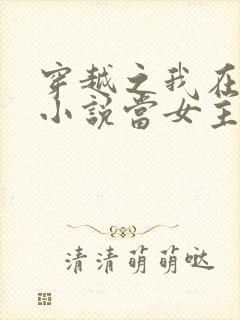 穿越之我在
小說當女主
清清萌萌噠